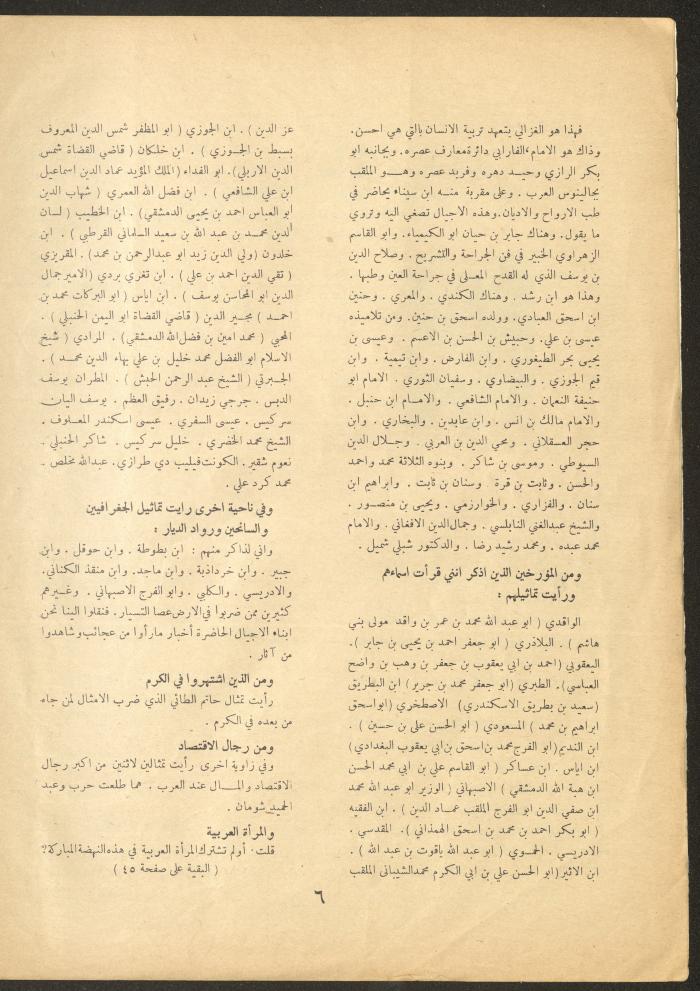 فهذا هو الغزالي يتعهد تربية الانسان بالتي هي احسن.
وذاك هو الامام الفارابي دائرة معارف عصره. وبجانبه ابو
بكر الرازي وحيد دهره وفريد عصره وهو الملقب
بجالينوس العرب . وعلى مقربة منه ابن سيناء يحاضر في
طب الارواح والاديان. وهذه الاجيال تصغي اليه وتروي
ما يقول. وهناك جابر بن حيان ابو الكيمياء. وابو القاسم
الزهراوي الخبير في فن الجراحة والتشريح . وصلاح الدين
بن يوسف الذي له القدح المعلى في جراحة العين وطبها .
وهذا هو ابن رشد . وهناك الكندي . والمعري . وحنين
ابن اسحق العبادي. وولده اسحق بن حنين. ومن تلاميذه
عيسى بن علي. وحبيش بن الحسن بن الاعسم . وعيسى بن
يحيى بحر الطيغوري . وابن الفارض . وابن تيمية . وابن
قيم الجوزي . والبيضاوي . وسفيان الثوري . الامام ابو
حنيفة النعمان . والامام الشافعي . والامام ابن حنبل .
والامام مالك بن انس . وابن عابدين . والبخاري . وابن
حجر العسقلاني . ومحي الدين بن العربي . وجلال الدين
السيوطي . وموسى بن شاكر . وبنوه الثلاثة محمد واحمد
والحسن . وثابت بن قرة . وسنان بن ثابت . وابراهيم ابن
سنان . والفزاري . والخوارزمي . ويحيى بن منصور .
والشيخ عبدالغني النابلسي . وجمال الدين الافغاني . والامام
محمد عبده . ومحمد رشيد رضا . والدكتور شبلي شميل .
ومن المؤرخين الذين اذكر انني قرأت اسماءهم
ورأيت تماثيلهم :
الواقدي ( ابو عبد الله محمد بن عمر بن واقد مولى بني
هاشم ) . البلاذري ( ابو جعفر احمد بن يحيى بن جابر ).
اليعقوبي (احمد بن ابي يعقوب بن جعفر بن وهب بن واضح
العباسي). الطبري (ابو جعفر محمد بن جرير) ابن البطريق
(سعيد بن بطريق الاسكندري) الاصطخري (ابواسحق
ابراهيم بن محمد ) المسعودي ( ابو الحسن علي بن حسين ) .
ابن النديم (ابو الفرج محمد بن اسحق بن ابي يعقوب البغدادي)
ابن اياس . ابن عساكر ( ابو القاسم علي بن ابي محمد الحسن
ابن هبة الله الدمشقي ) الاصبهاني ( الوزير ابو عبد الله محمد
ابن صفي الدين ابو الفرج الملقب عماد الدين ) . ابن الفقيه
( ابو بكر احمد بن محمد بن اسحق الهمذاني ). المقدسي .
الادريسي . الحموي ( ابو عبد الله ياقوت بن عبد الله ) .
ابن الاثير (ابو الحسن علي بن ابي الكرم محمد الشيباني الملقب
عز الدين ) . ابن الجوزي ( ابو المظفر شمس الدين المعروف
بسبط بن الجوزي ) . ابن خلكان ( قاضي القضاة شمس
الدين الاربلي). ابو الفداء (الملك المؤيد عماد الدين اسماعيل
ابن علي الشافعي ) . ابن فضل الله العمري ( شهاب الدين
ابو العباس احمد بن يحيى الدمشقي). ابن الخطيب ( لسان
الدين محمد بن عبد الله بن سعيد السلماني القرطبي ) . ابن
خلدون (ولي الدين زيد ابو عبدالرحمن بن محمد). المقريزي
( تقي الدين احمد بن علي ) . ابن تغري بردي (الامير جمال
الدين ابو المحاسن يوسف ) . ابن اياس ( ابو البركات محمد بن
احمد ) مجير الدين ( قاضي القضاة ابو اليمن الحنبلي ) .
المحبي ( محمد امين بن فضل الله الدمشقي) . المرادي ( شيخ
الاسلام ابو الفضل محمد خليل بن علي بهاء الدين محمد ) .
الجبرتي ( الشيخ عبد الرحمن الحبش ) . المطران يوسف
الدبس . جرجي زيدان . رفيق العظم . يوسف اليان
سركيس . عيسى السفري . عيسى اسكندر المعلوف .
الشيخ محمد الخضري . خليل سركيس . شاكر الحنبلي .
نعوم شقير . الكونت فيليب دي طرازي. عبدالله مخلص .
محمد كرد علي .
وفي ناحية اخرى رايت تماثيل الجغرافيين
والسائحين ورواد الديار :
واني لذاكر منهم : ابن بطوطة . وابن حوقل . وابن
جبير . وابن خرداذبة . وابن ماجد. وابن منقذ الكناني.
والادريسي . والكلبي . وابو الفرج الاصبهاني . وغيرهم
كثيرين ممن ضربوا في الارض عصا التسيار . فنقلوا الينا نحن
ابناء الاجيال الحاضرة أخبار مارأوا من عجائب وشاهدوا
من آثار .
ومن الذين اشتهروا في الكرم
رأيت تمثال حاتم الطائي الذي ضرب الامثال لمن جاء
من بعده في الكرم .
ومن رجال الاقتصاد
وفي زاوية اخرى رأيت تمثالين لاثنين من اكبر رجال
الاقتصاد والمال عند العرب . هما طلعت حرب وعبد
الحميد شومان .
والمرأة العربية
قلت· أولم تشترك المرأة العربية في هذه النهضة المباركة؟
( البقية على صفحة ٤٥ )
٦